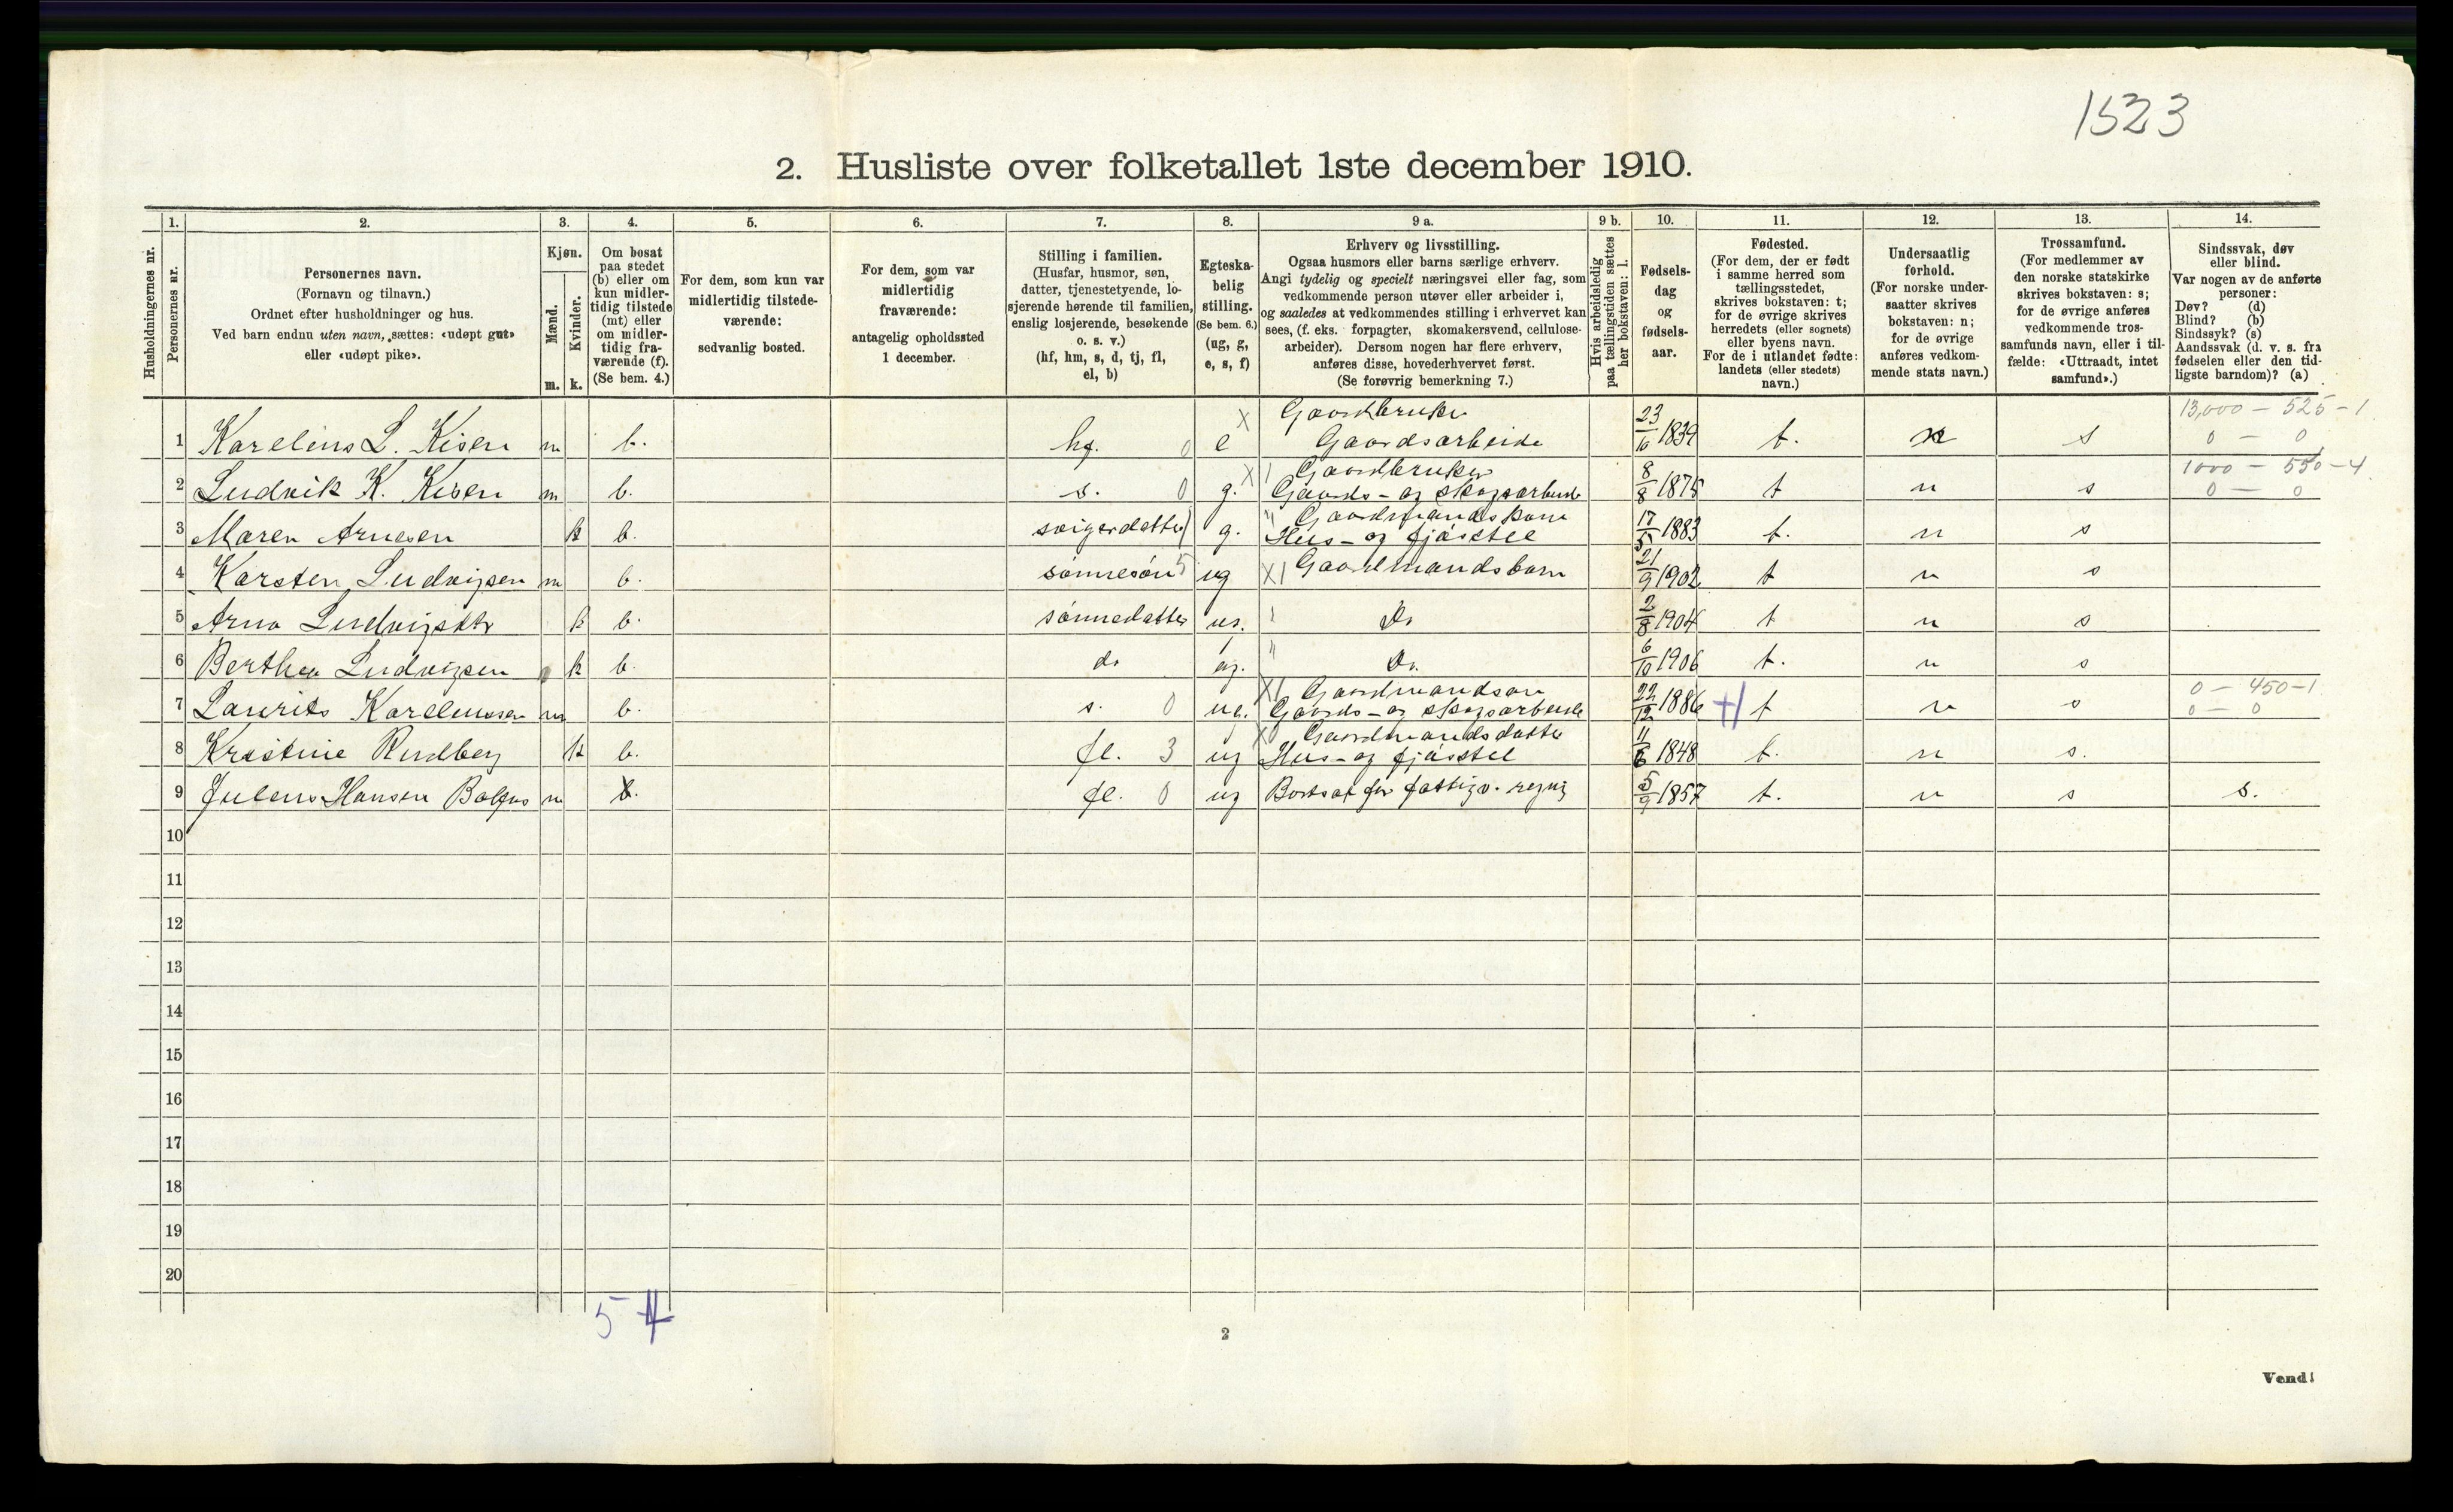 1523
2. Husliste over folketallet 1ste december 1910.
1. 2. 3. 4. 5. 6. 7. 8. 9 a. 9 b. 10. 11. 12. 13. 14.
Husholdningernes nr.
Personernes nr.
Personernes navn.
(Fornavn og tilnavn.)
Ordnet efter husholdninger og hus.
Ved barn endnu uten navn, sættes: «udøpt gut»
eller «udøpt pike».
Kjøn.
Mænd.
Kvinder.
m. k.
Om bosat
paa stedet
(b) eller om
kun midler-
tidig tilstede
(mt) eller
om midler-
tidig fra-
værende (f).
(Se bem. 4.)
For dem, som kun var
midlertidig tilstede-
værende:
sedvanlig bosted.
For dem, som var
midlertidig
fraværende:
antagelig opholdssted
1 december.
Stilling i familien.
(Husfar, husmor, søn,
datter, tjenestetyende, lo-
sjerende hørende til familien,
enslig losjerende, besøkende
o. s. v.)
(hf, hm, s, d, tj, fl,
el, b)
Egteska-
belig
stilling.
(Se bem. 6.)
(ug, g,
e, s, f)
Erhverv og livsstilling.
Ogsaa husmors eller barns særlige erhverv.
Angi tydelig og specielt næringsvei eller fag, som
vedkommende person utøver eller arbeider i,
og saaledes at vedkommendes stilling i erhvervet kan
sees, (f. eks. forpagter, skomakersvend, cellulose-
arbeider). Dersom nogen har flere erhverv,
anføres disse, hovederhvervet først.
(Se forøvrig bemerkning 7.)
Hvis arbeidsledig
paa tællingstiden sættes
her bokstaven: l.
Fødsels-
dag
og
fødsels-
aar.
Fødested.
(For dem, der er født
i samme herred som
tællingsstedet,
skrives bokstaven: t;
for de øvrige skrives
herredets (eller sognets)
eller byens navn.
For de i utlandet fødte:
landets (eller stedets)
navn.)
Undersaatlig
forhold.
(For norske under-
saatter skrives
bokstaven: n;
for de øvrige
anføres vedkom-
mende stats navn.)
Trossamfund.
(For medlemmer av
den norske statskirke
skrives bokstaven: s;
for de øvrige anføres
vedkommende tros-
samfunds navn, eller i til-
fælde: «Uttraadt, intet
samfund».)
Sindssvak, døv
eller blind.
Var nogen av de anførte
personer:
Døv? (d)
Blind? (b)
Sindssyk? (s)
Aandssvak (d. v. s. fra
fødselen eller den tid-
ligste barndom)? (a)
X Gaardbruker 13,000 – 525 – 1
1 Karelius L. Kisen m b. hf. 0 e Gaardsarbeide 23/10 1839 t. n s 0 – 0
X 1 Gaardbruker 1000 – 550 – 4
2 Ludvik K. Kisen m b. s. 0 g. Gaards- og skogsarbeide 8/8 1875 t n s 0 – 0
" Gaardmandskone
3 Maren Arnesen k b. svigerdatter 1 g. Hus- og fjøsstel 17/5 1883 t. n s
4 Karsten Ludvigsen m b. sønnesøn 5 ug X1 Gaardmandsbarn 21/9 1902 t n s
5 Arna Ludvigsdtr k b. sønnedatter ug. " Do 2/8 1904 t n s
6 Berthea Ludvigsen k b. do ug. " Do. 6/10 1906 t. n s
X1 Gaardmandsøn 0 – 450 – 1
7 Laurits Karelinssen m b. s. 0 ug. Gaards- og skogsarbeide 22/12 1886 t n s 0 – 0
X0 Gaardmandsdatter
8 Kristine Rudberg k b. fl. 3 ug Hus- og fjøsstel 11/6 1848 t. n s.
9 Julens Hansen m b. fl. 0 ug Bortsat for fattigv. regnig 5/9 1857 t. n s s.
10
11
12
13
14
15
16
17
18
19
20
5 4
2
Vend!